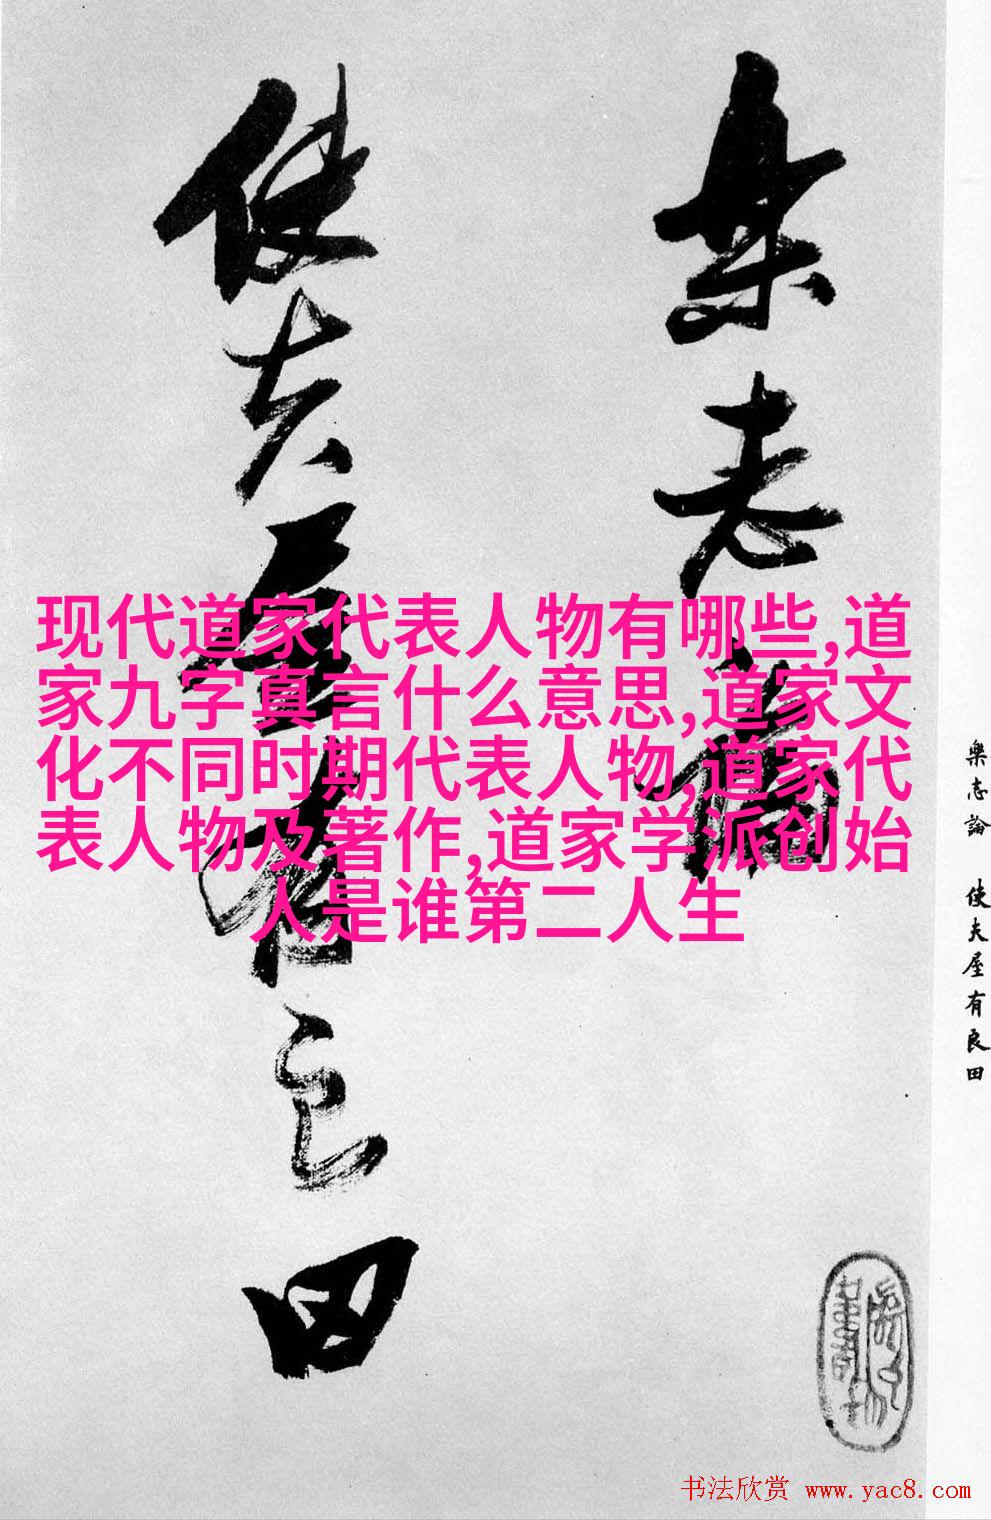 樂志論
使夫屋有良田
现代道家代表人物有哪些,道
家九字真言什么意思,道家文
化不同时期代表人物,道家代
表人物及著作,道家学派创始
人是谁第二人生
樂志論 使夫屋有良田
书法欣赏 www.yac8.com